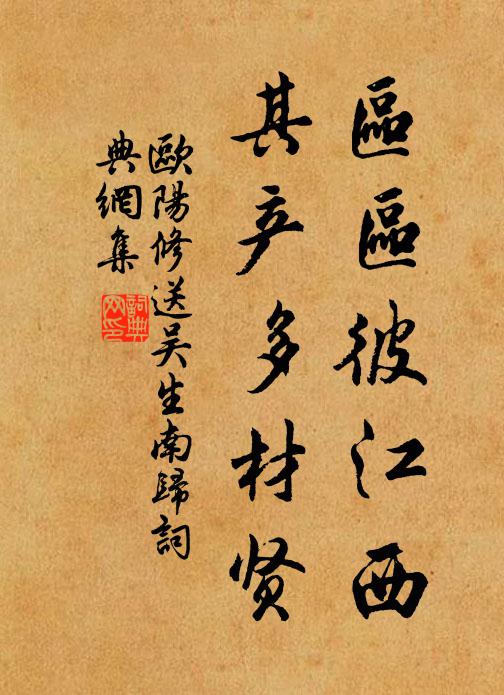 區區彼江西
其产多材贤
歐陽修送吴生南歸詞
典網集
詞典
网印